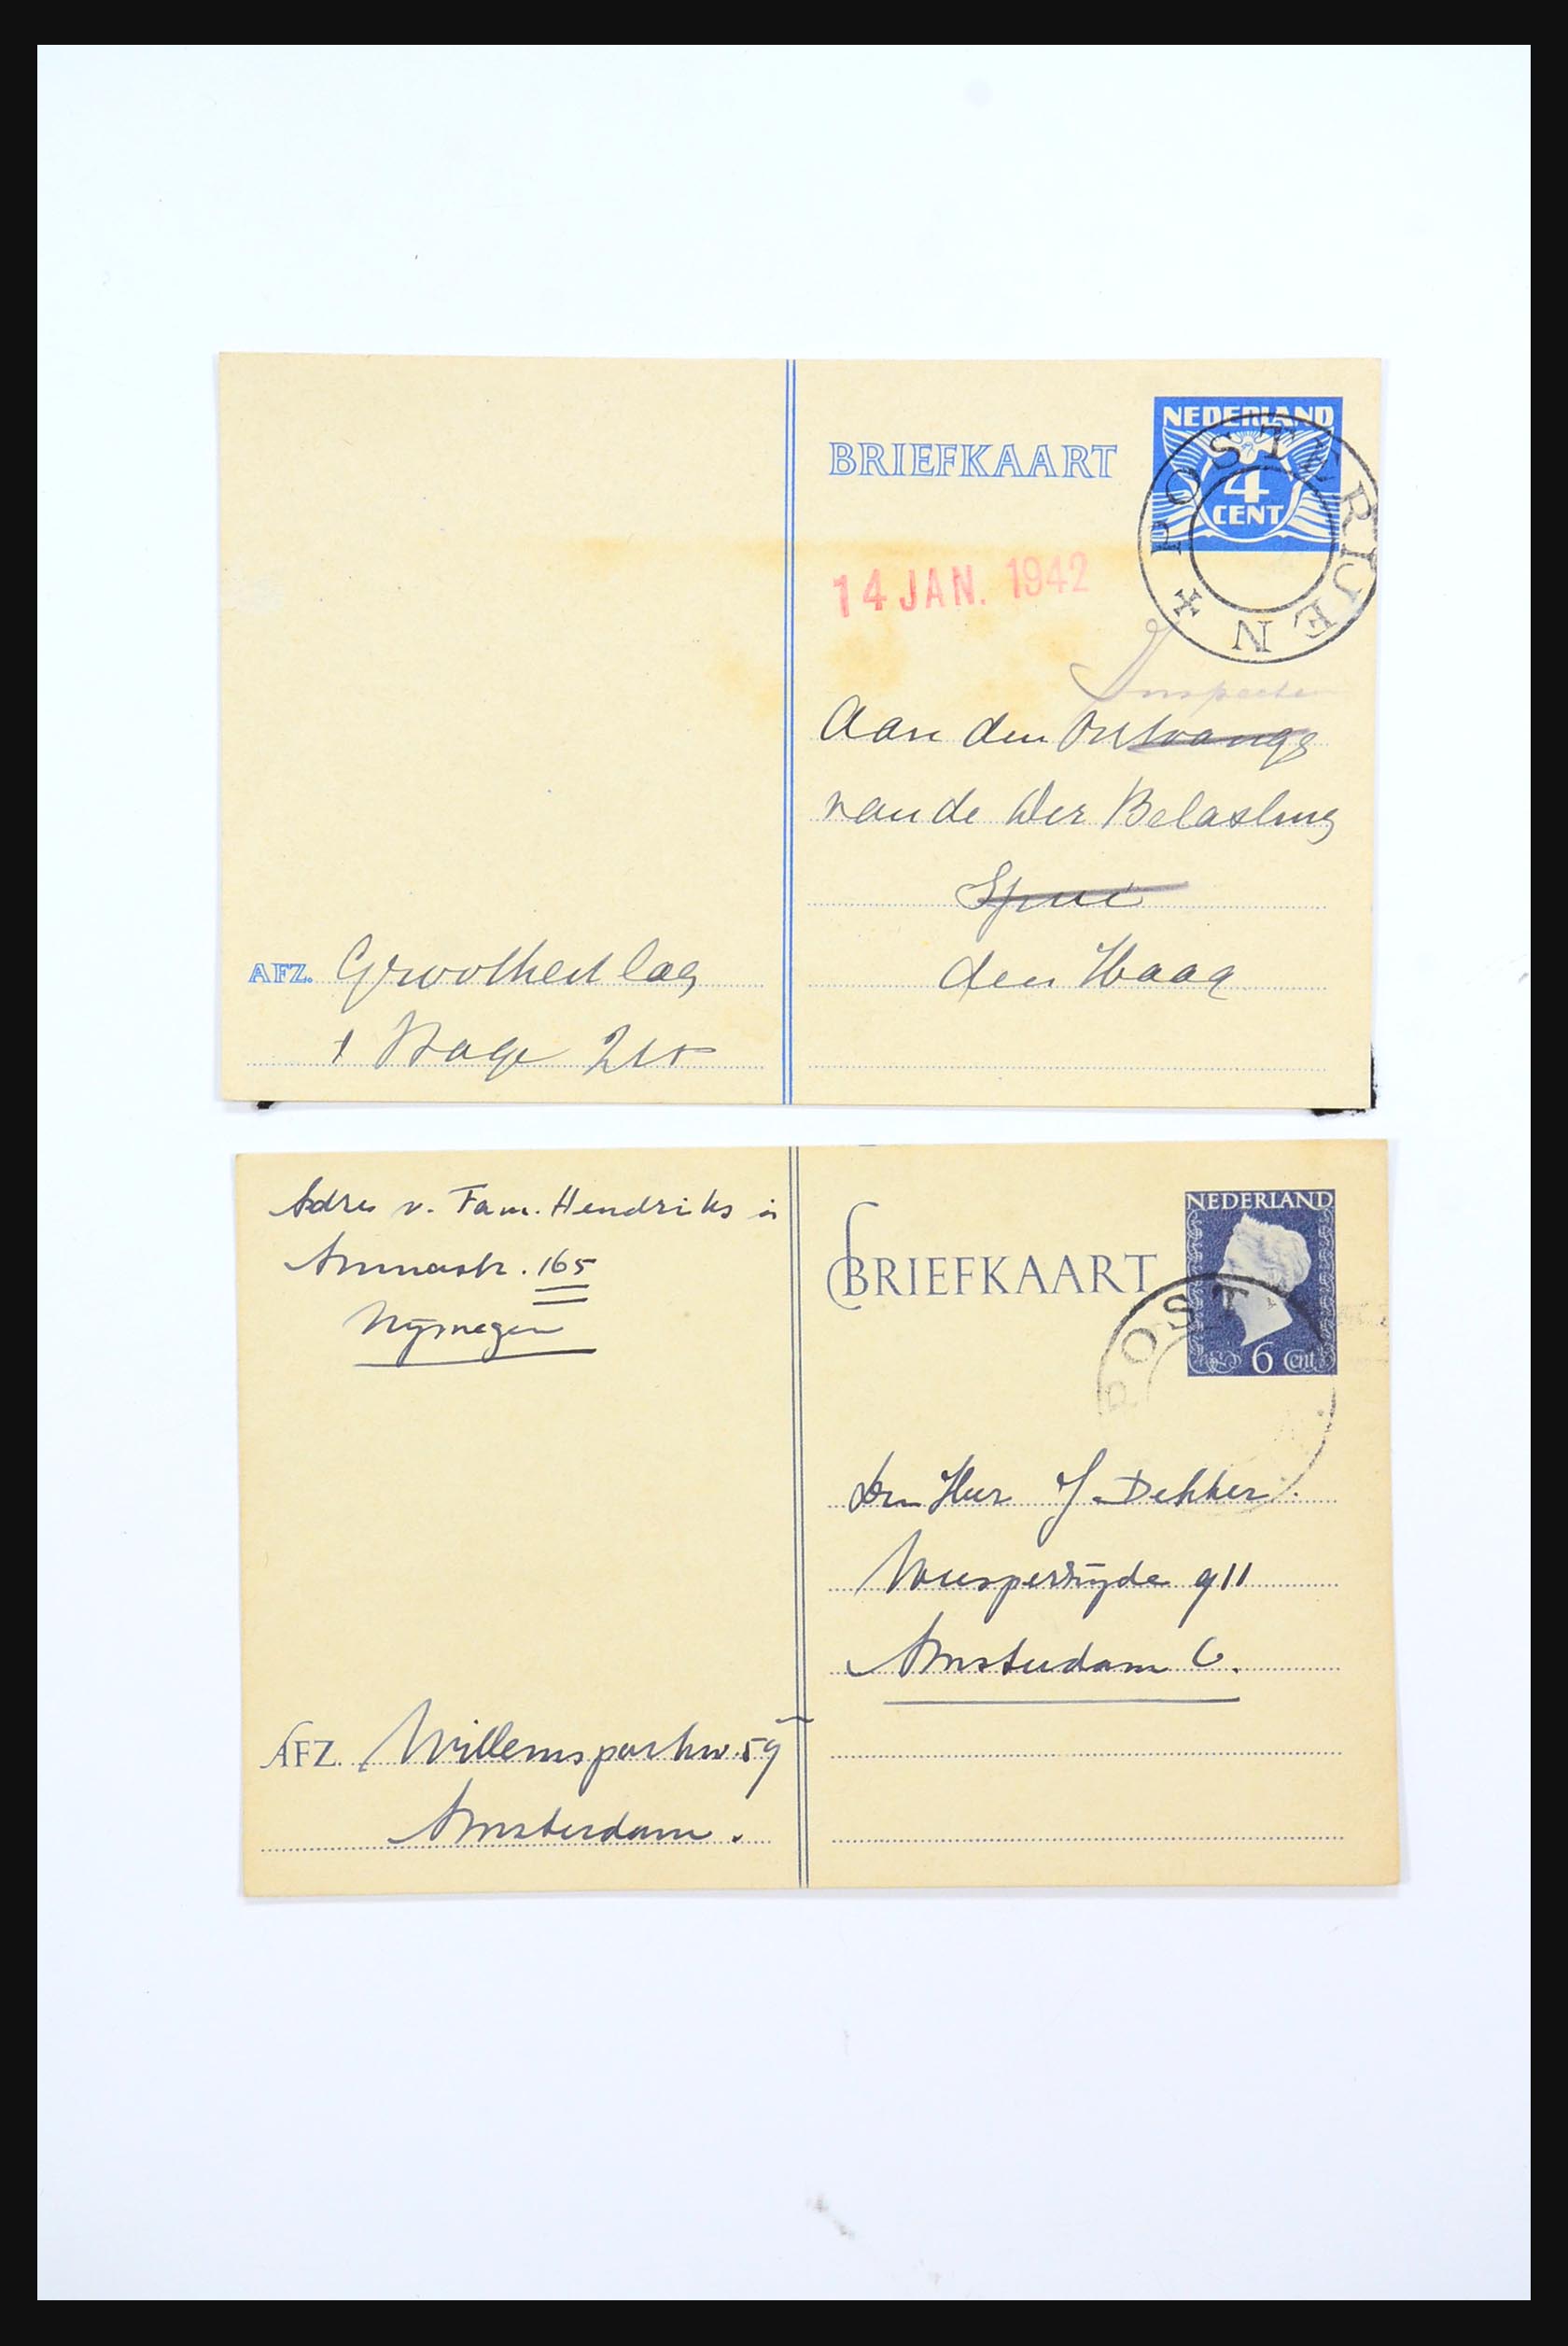 NEDERLAND
4
CENT
BRIEFKAART
POSTERIJEN
14 JAN. 1942
Inspecte
Aan den Ontvange
van de Der Belasting
Spui
den Haag
AFZ. Groothedlag
Hage
Adres v. Fam. Hendriks is
Annastr. 165
Nijmegen
NEDERLAND
6 Cent
BRIEFKAART
POST
Den Heer J. Dekker.
Weesperzijde 911
Amsterdam C.
AFZ. Willemsparkw. 59
Amsterdam.